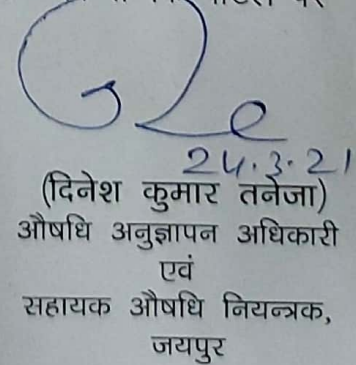 24.3.21
(दिनेश कुमार तनेजा)
औषधि अनुज्ञापन अधिकारी
एवं
सहायक औषधि नियन्त्रक,
जयपुर